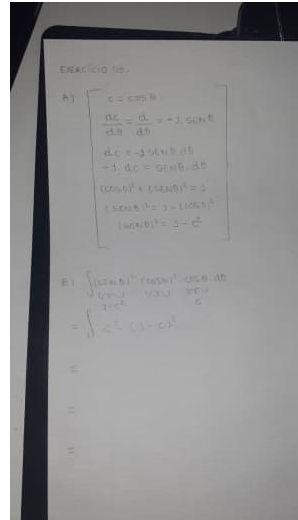 EXERCÍCIO
A) c = cos θ
dc/dθ = d/dθ = -1. SEN θ
dc = -1 SEN θ. dθ
-1. dc = SEN θ. dθ
(COS θ)² + (SEN θ)² = 1
(SEN θ)² = 1 - (COS θ)²
(SEN θ)² = 1 - c²
B) ∫ (SEN θ)² (COS θ)² COS θ. dθ
1-c² c
= ∫ c² (1-c)²
=
=
=